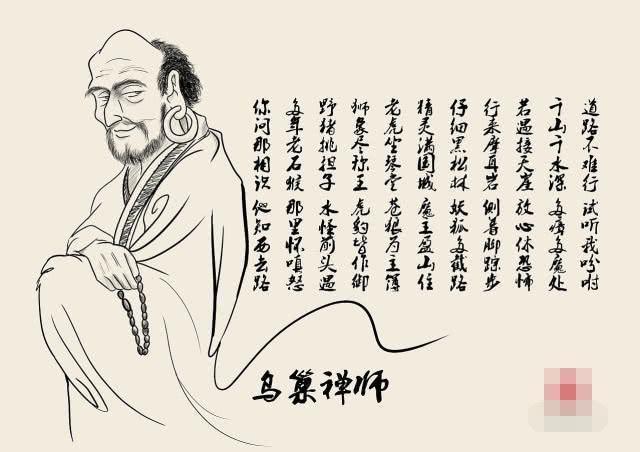 道路不难行 试听我吩咐
千山千水深 多瘴多魔处
若遇接天崖 放心休恐怖
行来摩耳岩 侧着脚踪步
仔细黑松林 妖狐多截路
精灵满国城 魔王盈山住
老虎坐琴堂 苍狼为主簿
狮象尽称王 虎豹皆作御
野猪挑担子 水怪前头遇
多年老石猴 那里怀嗔怒
你问那相识 他知西去路
乌巢禅师